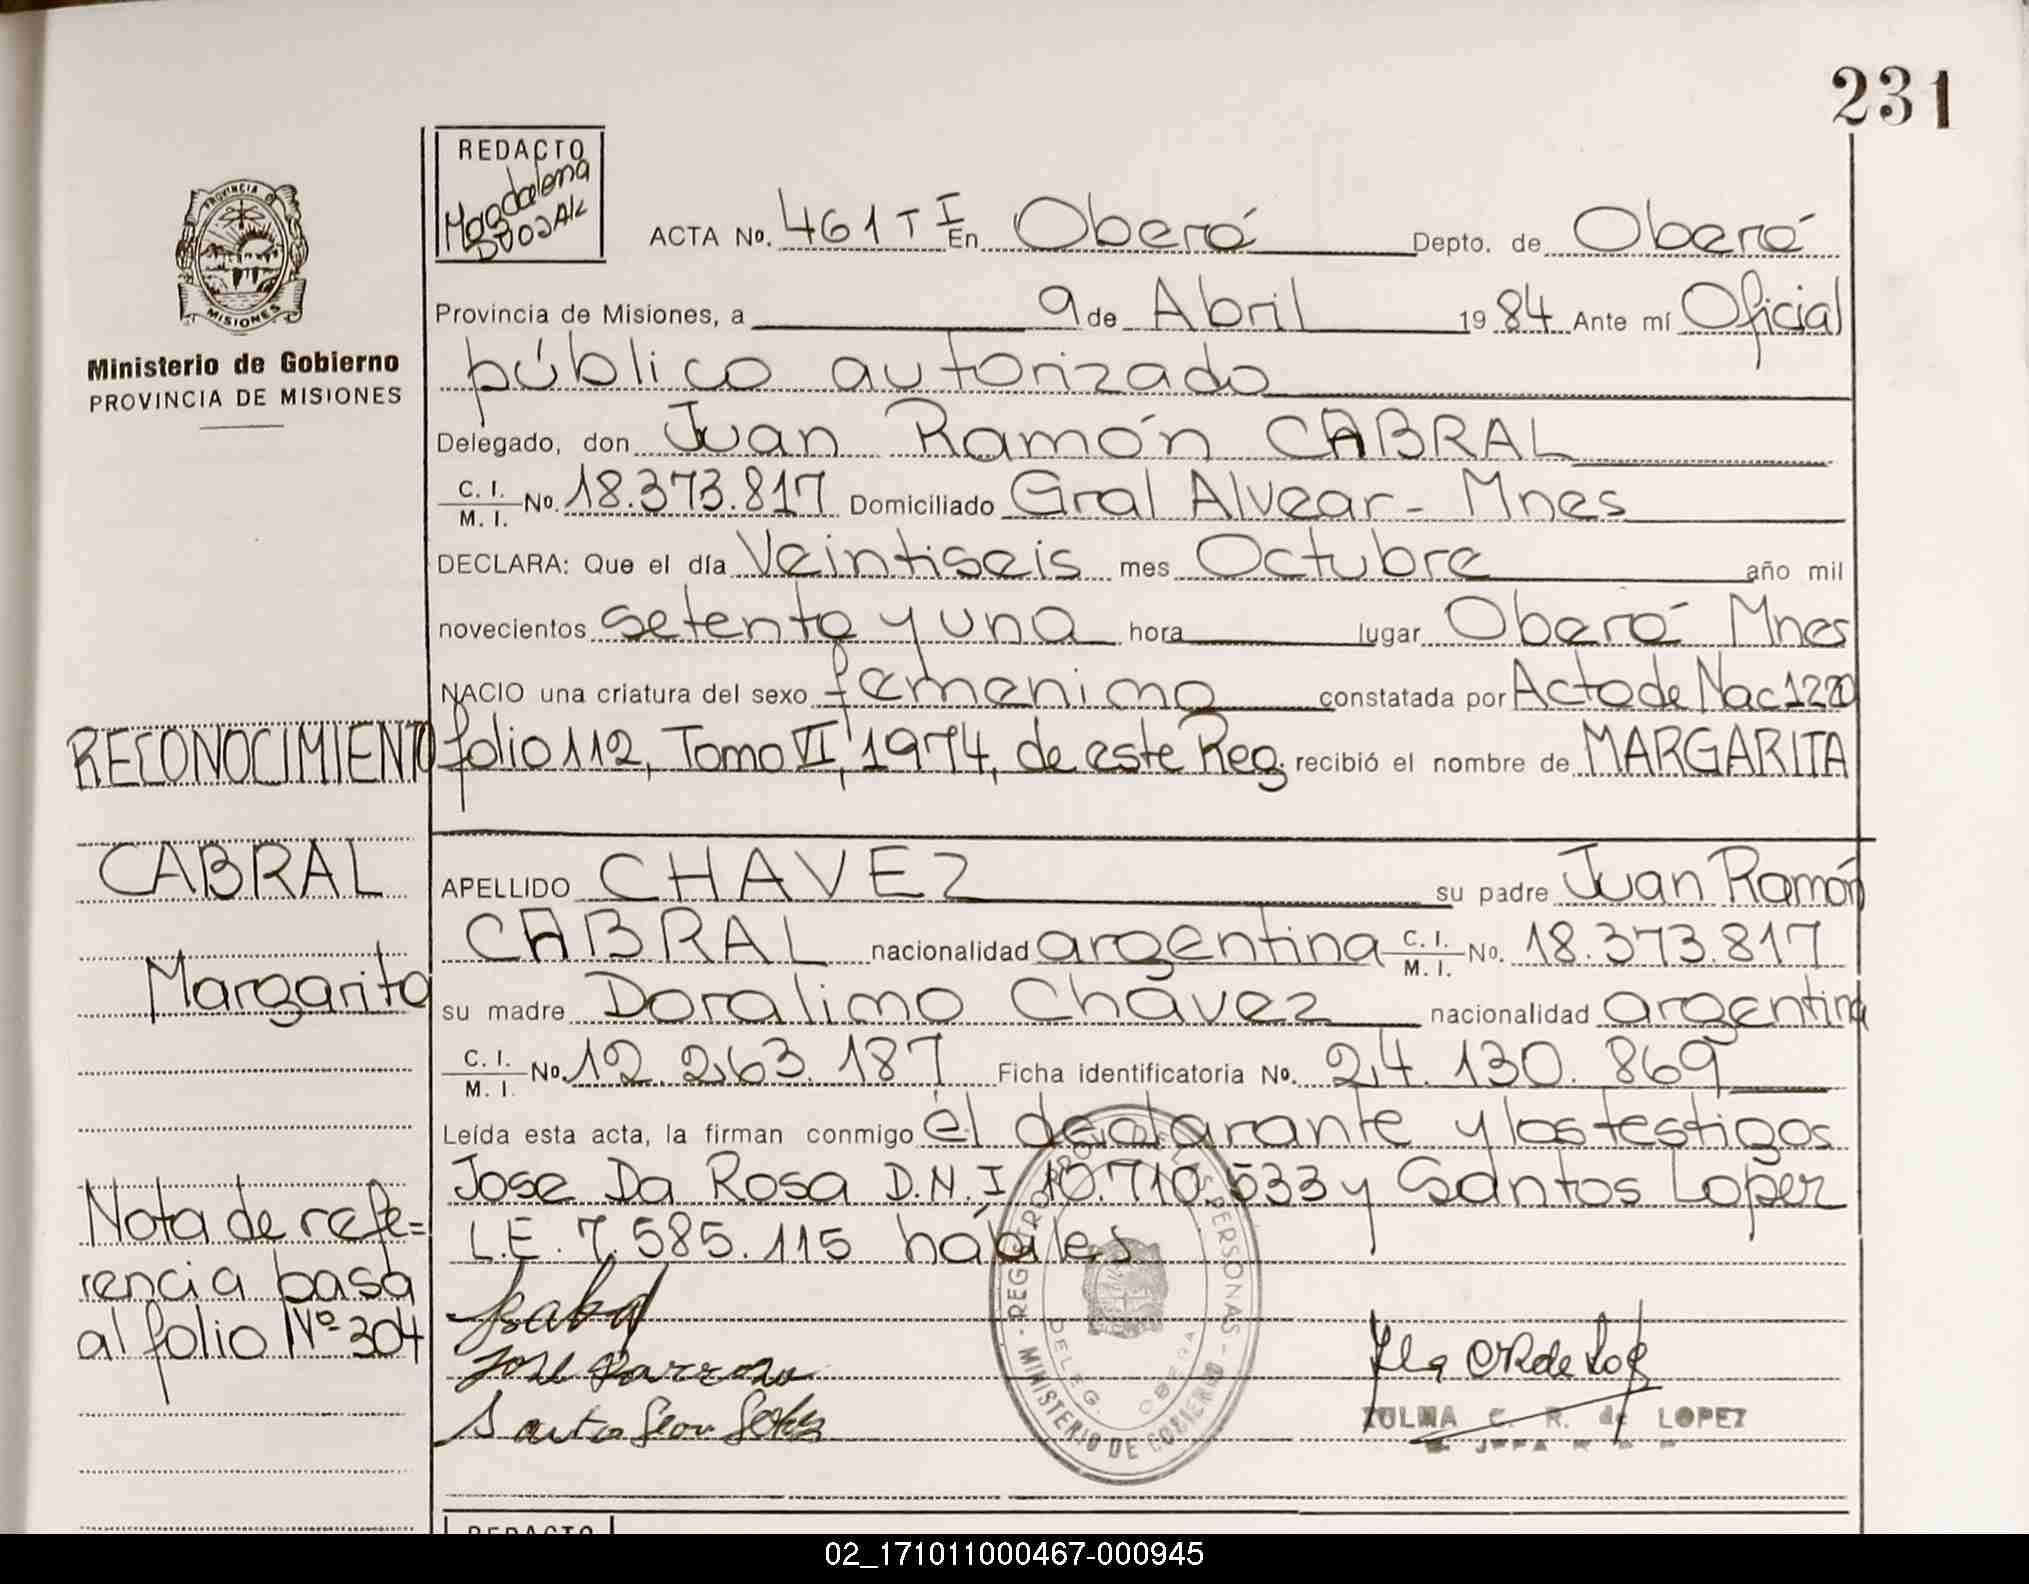 231
REDACTO
Magdalena
ACTA No. 461 T I En Oberá Depto. de Oberá
PROVINCIA DE
MISIONES
Provincia de Misiones, a 9 de Abril 1984 Ante mí Oficial
Ministerio de Gobierno
PROVINCIA DE MISIONES
público autorizado
Delegado, don Juan Ramón CABRAL
C. I. M. I. No. 18.373.817 Domiciliado Gral Alvear - Mnes
DECLARA: Que el día Veintiseis mes Octubre año mil
novecientos setenta y uno hora lugar Oberá Mnes
NACIO una criatura del sexo femenino constatada por Acta de Nac 1220
RECONOCIMIENTO
folio 112, Tomo VI, 1974, de este Reg. recibió el nombre de MARGARITA
CABRAL
Margarita
APELLIDO CHAVEZ su padre Juan Ramón
CABRAL nacionalidad argentina C. I. M. I. No. 18.373.817
su madre Doralima Chávez nacionalidad argentina
C. I. M. I. No. 12.263.187 Ficha identificatoria No. 24.130.869
Leída esta acta, la firman conmigo él declarante y los testigos
Jose Da Rosa D.N.I 10.710.533 y Santos Lopez
L.E. 7.585.115 hábiles
Nota de refe=
rencia basa
al folio Nº 304
REGISTRO PERSONAS - MINISTERIO DE GOBIERNO -
DELEG. OBERA
ZULMA C. R. de LOPEZ
REDACTO
02_171011000467-000945